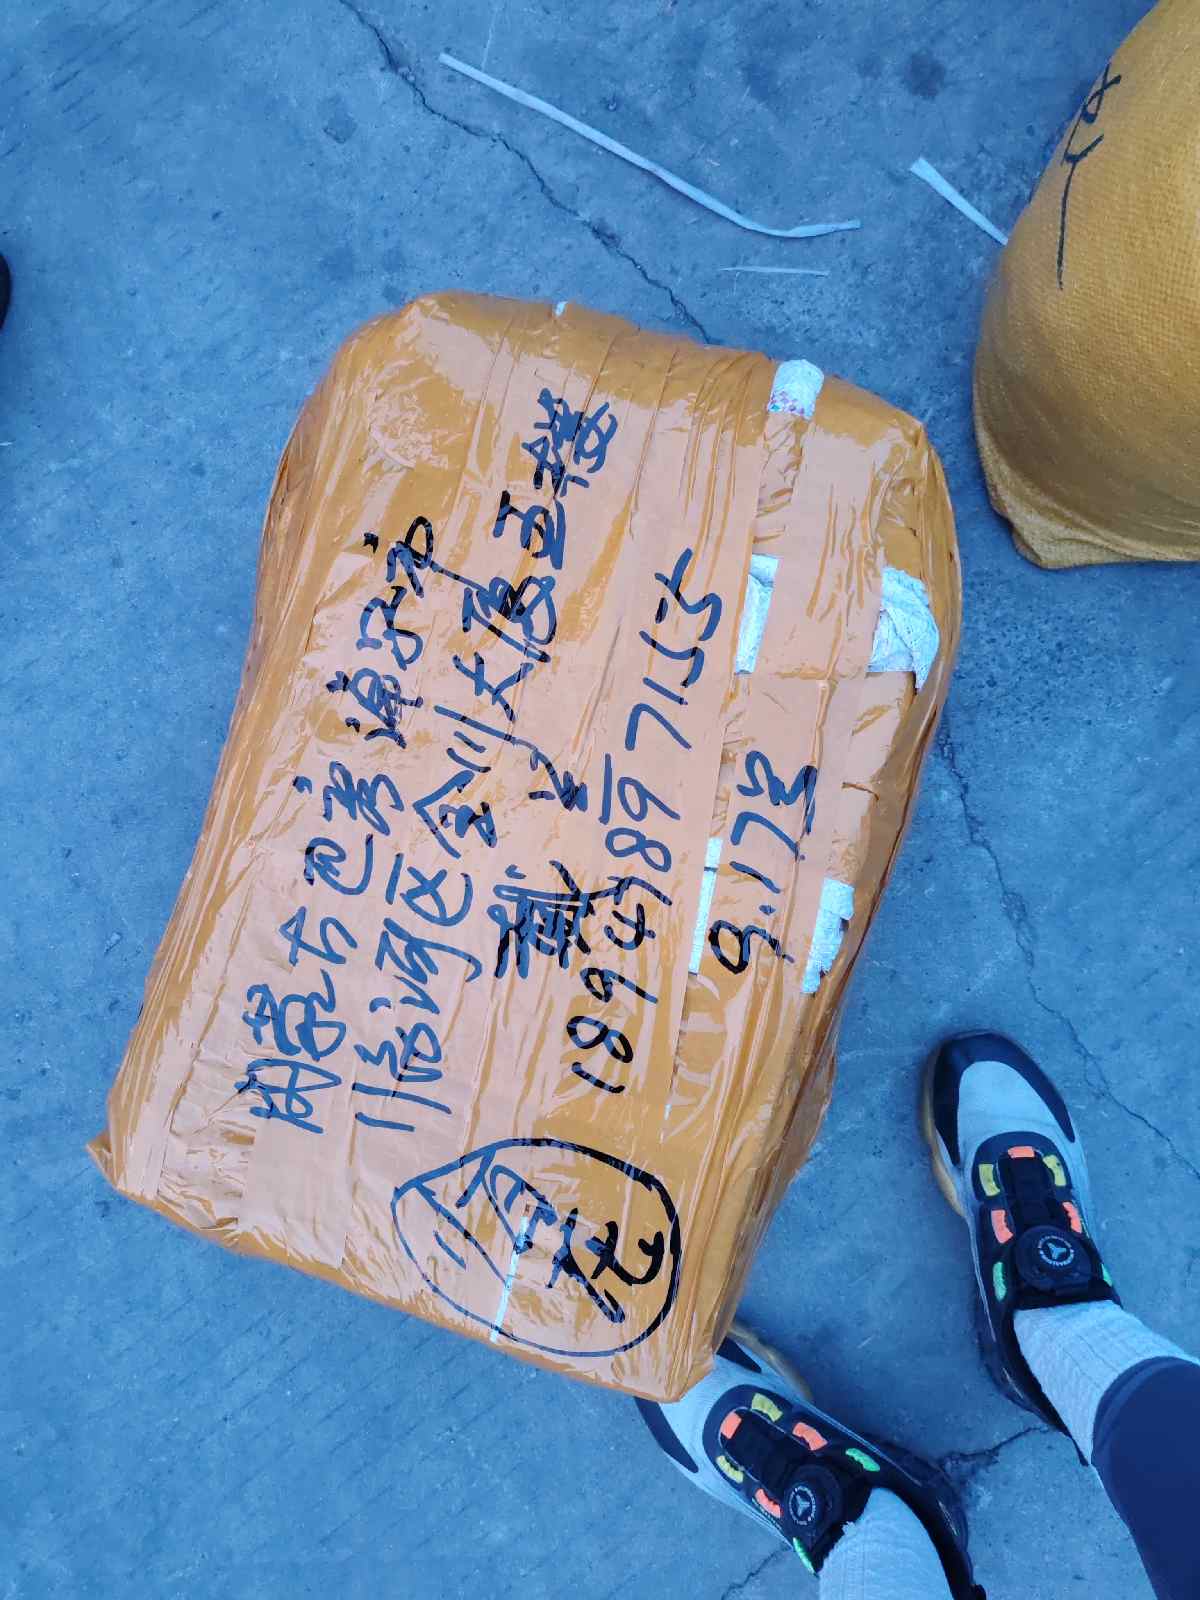 内蒙古巴彦淖尔市
临河区金川大厦五楼
18947897155
9.17号